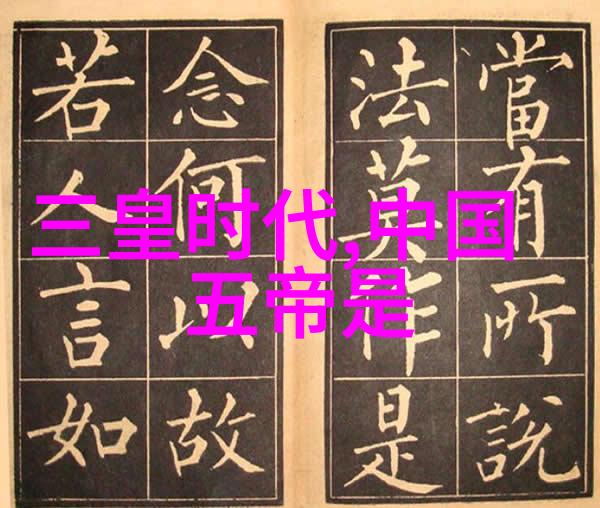 三皇时代,中国
五帝是
當有所說
法莫作是
念何以故
若人言如